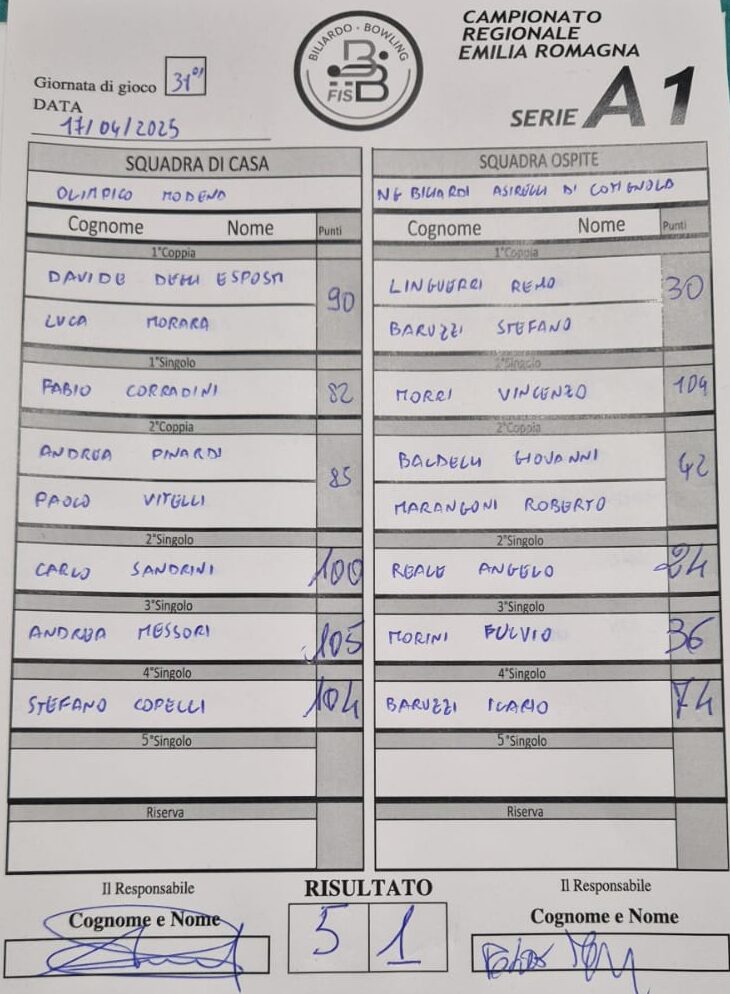 CAMPIONATO
REGIONALE
EMILIA ROMAGNA
SERIE A1
BILIARDO - BOWLING
FISBB
Giornata di gioco 31°
DATA
17/04/2025
SQUADRA DI CASA
OLIMPICO MODENA
Cognome Nome Punti
1°Coppia
DAVIDE DEGLI ESPOSTI
90
LUCA MORARA
1°Singolo
FABIO CORRADINI 82
2°Coppia
ANDREA PINARDI
85
PAOLO VITELLI
2°Singolo
CARLO SANDRINI 100
3°Singolo
ANDREA MESSORI 105
4°Singolo
STEFANO COPELLI 104
5°Singolo
Riserva
SQUADRA OSPITE
NG BILIARDI ASIRELLI DI COTIGNOLA
Cognome Nome Punti
1°Coppia
LINGUERRI REMO
30
BARUZZI STEFANO
1°Singolo
MORRI VINCENZO 104
2°Coppia
BALDELLI GIOVANNI
42
MARANGONI ROBERTO
2°Singolo
REALE ANGELO 24
3°Singolo
MORINI FULVIO 36
4°Singolo
BARUZZI ICARIO 74
5°Singolo
Riserva
Il Responsabile
Cognome e Nome
RISULTATO
5 1
Il Responsabile
Cognome e Nome